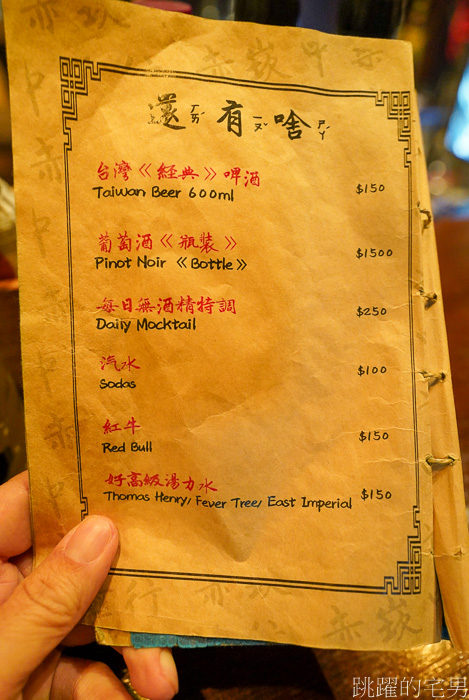 還ㄏㄞˊ有ㄧㄡˇ啥ㄕㄚˊ
台灣《經典》啤酒
Taiwan Beer 600ml
$150
葡萄酒《瓶裝》
Pinot Noir 《Bottle》
$1500
每日無酒精特調
Daily Mocktail
$250
汽水
Sodas
$100
紅牛
Red Bull
$150
好高級湯力水
Thomas Henry, Fever Tree, East Imperial
$150
跳躍的宅男